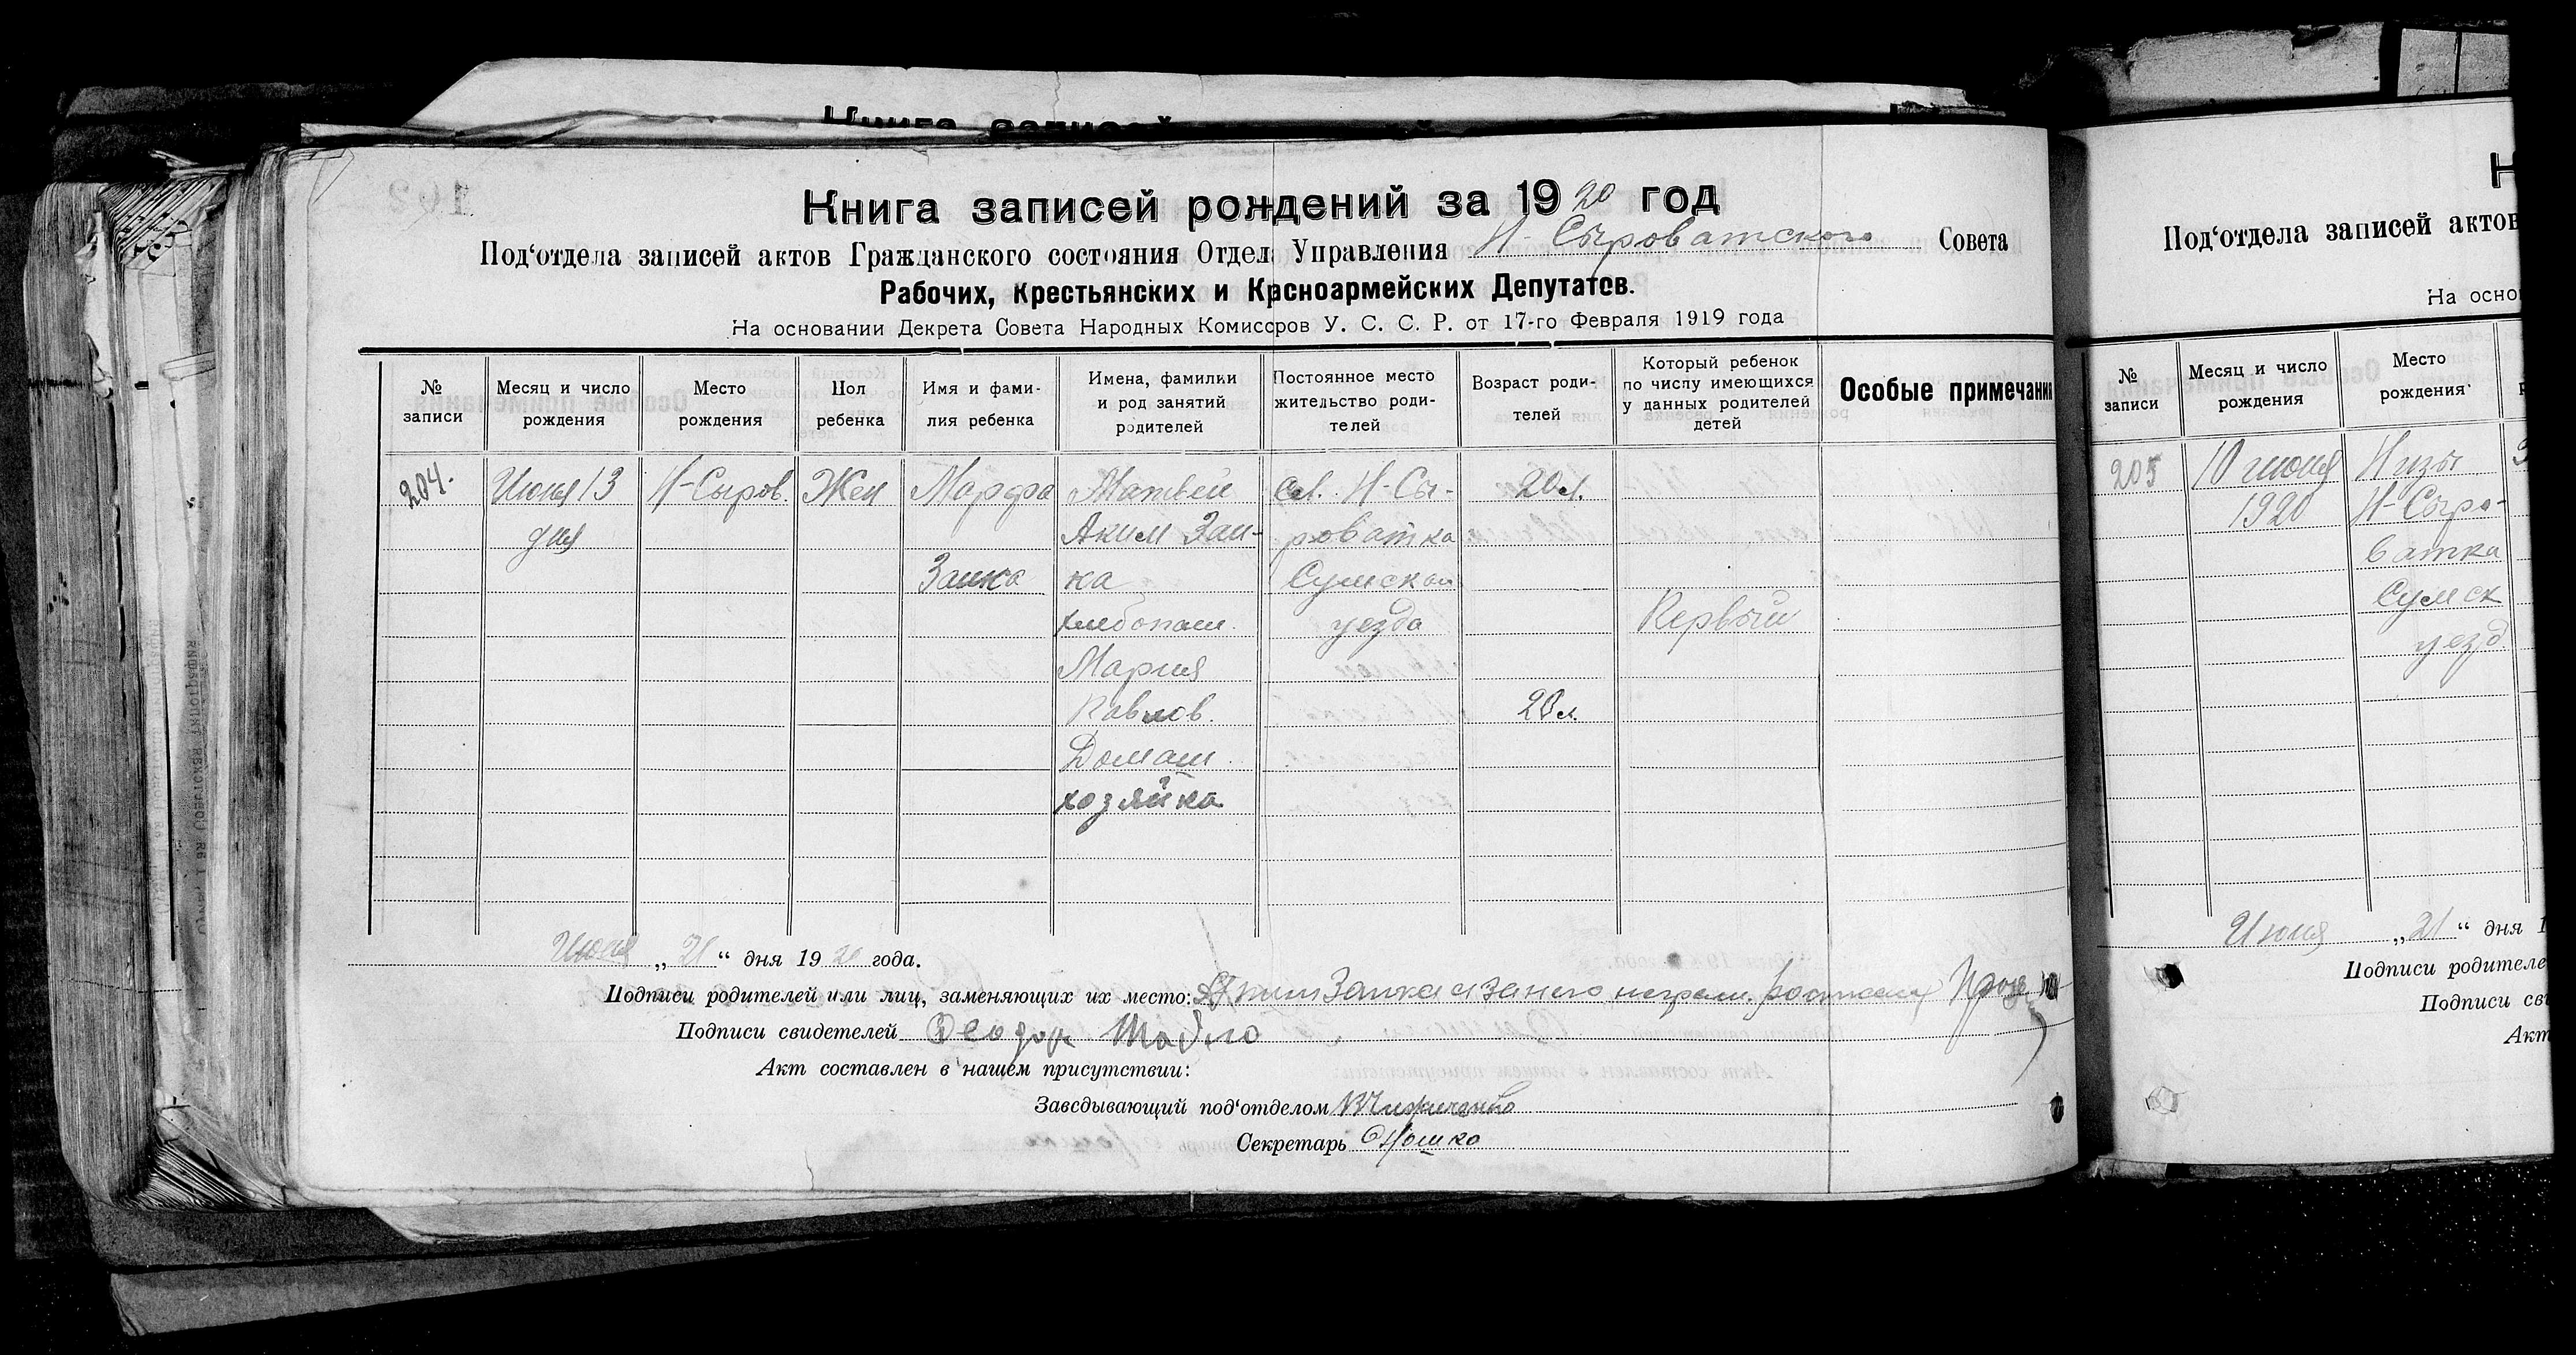 Книга записей рождений за 1920 год
Под'отдела записей актов Гражданского состояния Отдел Управления Н-Сыроватского Совета
Рабочих, Крестьянских и Красноармейских Депутатов.
На основании Декрета Совета Народных Комиссаров У. С. С. Р. от 17-го Февраля 1919 года
№ записи
Месяц и число рождения
Место рождения
Пол ребенка
Имя и фами-
лия ребенка
Имена, фамилии
и род занятий
родителей
Постоянное место
жительство роди-
телей
Возраст роди-
телей
Который ребенок
по числу имеющихся
у данных родителей
детей
Особые примечани
204. Июня 13 Н-Сыров. Жен Марфа Матвей сл. Н-Сы- 20 л.
дня Аким Заи- роватка
Заика ка Сумской
хлебопаш. уезда Первый
Мария
Павлов. 20 л.
Домаш.
хозяйка
Июня „21“ дня 1920 года.
Подписи родителей или лиц, заменяющих их место: Аким Заика а за него неграм.
Подписи свидетелей Феодор Шабло
Акт составлен в нашем присутствии:
Заведывающий под'отделом
Секретарь
Н
Под'отдела записей актов
На осно
№ записи
Месяц и число рождения
Место рождения
205 10 июня Низы
1920 Н-Сыро-
ватка
Сумск
уезд.
Июня „21“ дня 1
Подписи родителе
Подписи сви
Акт